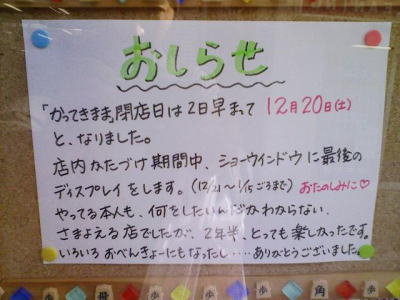 おしらせ
「かってきまま」閉店日は2日早まって 12月20日(土)
と、なりました。
店内かたづけ期間中、ショーウインドウに最後の
ディスプレイをします。(12/21〜1/5ごろまで) おたのしみに♡
やってる本人も、何をしたいんだかわからない、
さまよえる店でしたが、2年半、とっても楽しかったです。
いろいろおべんきょーにもなったし‥‥ありがとうございました。